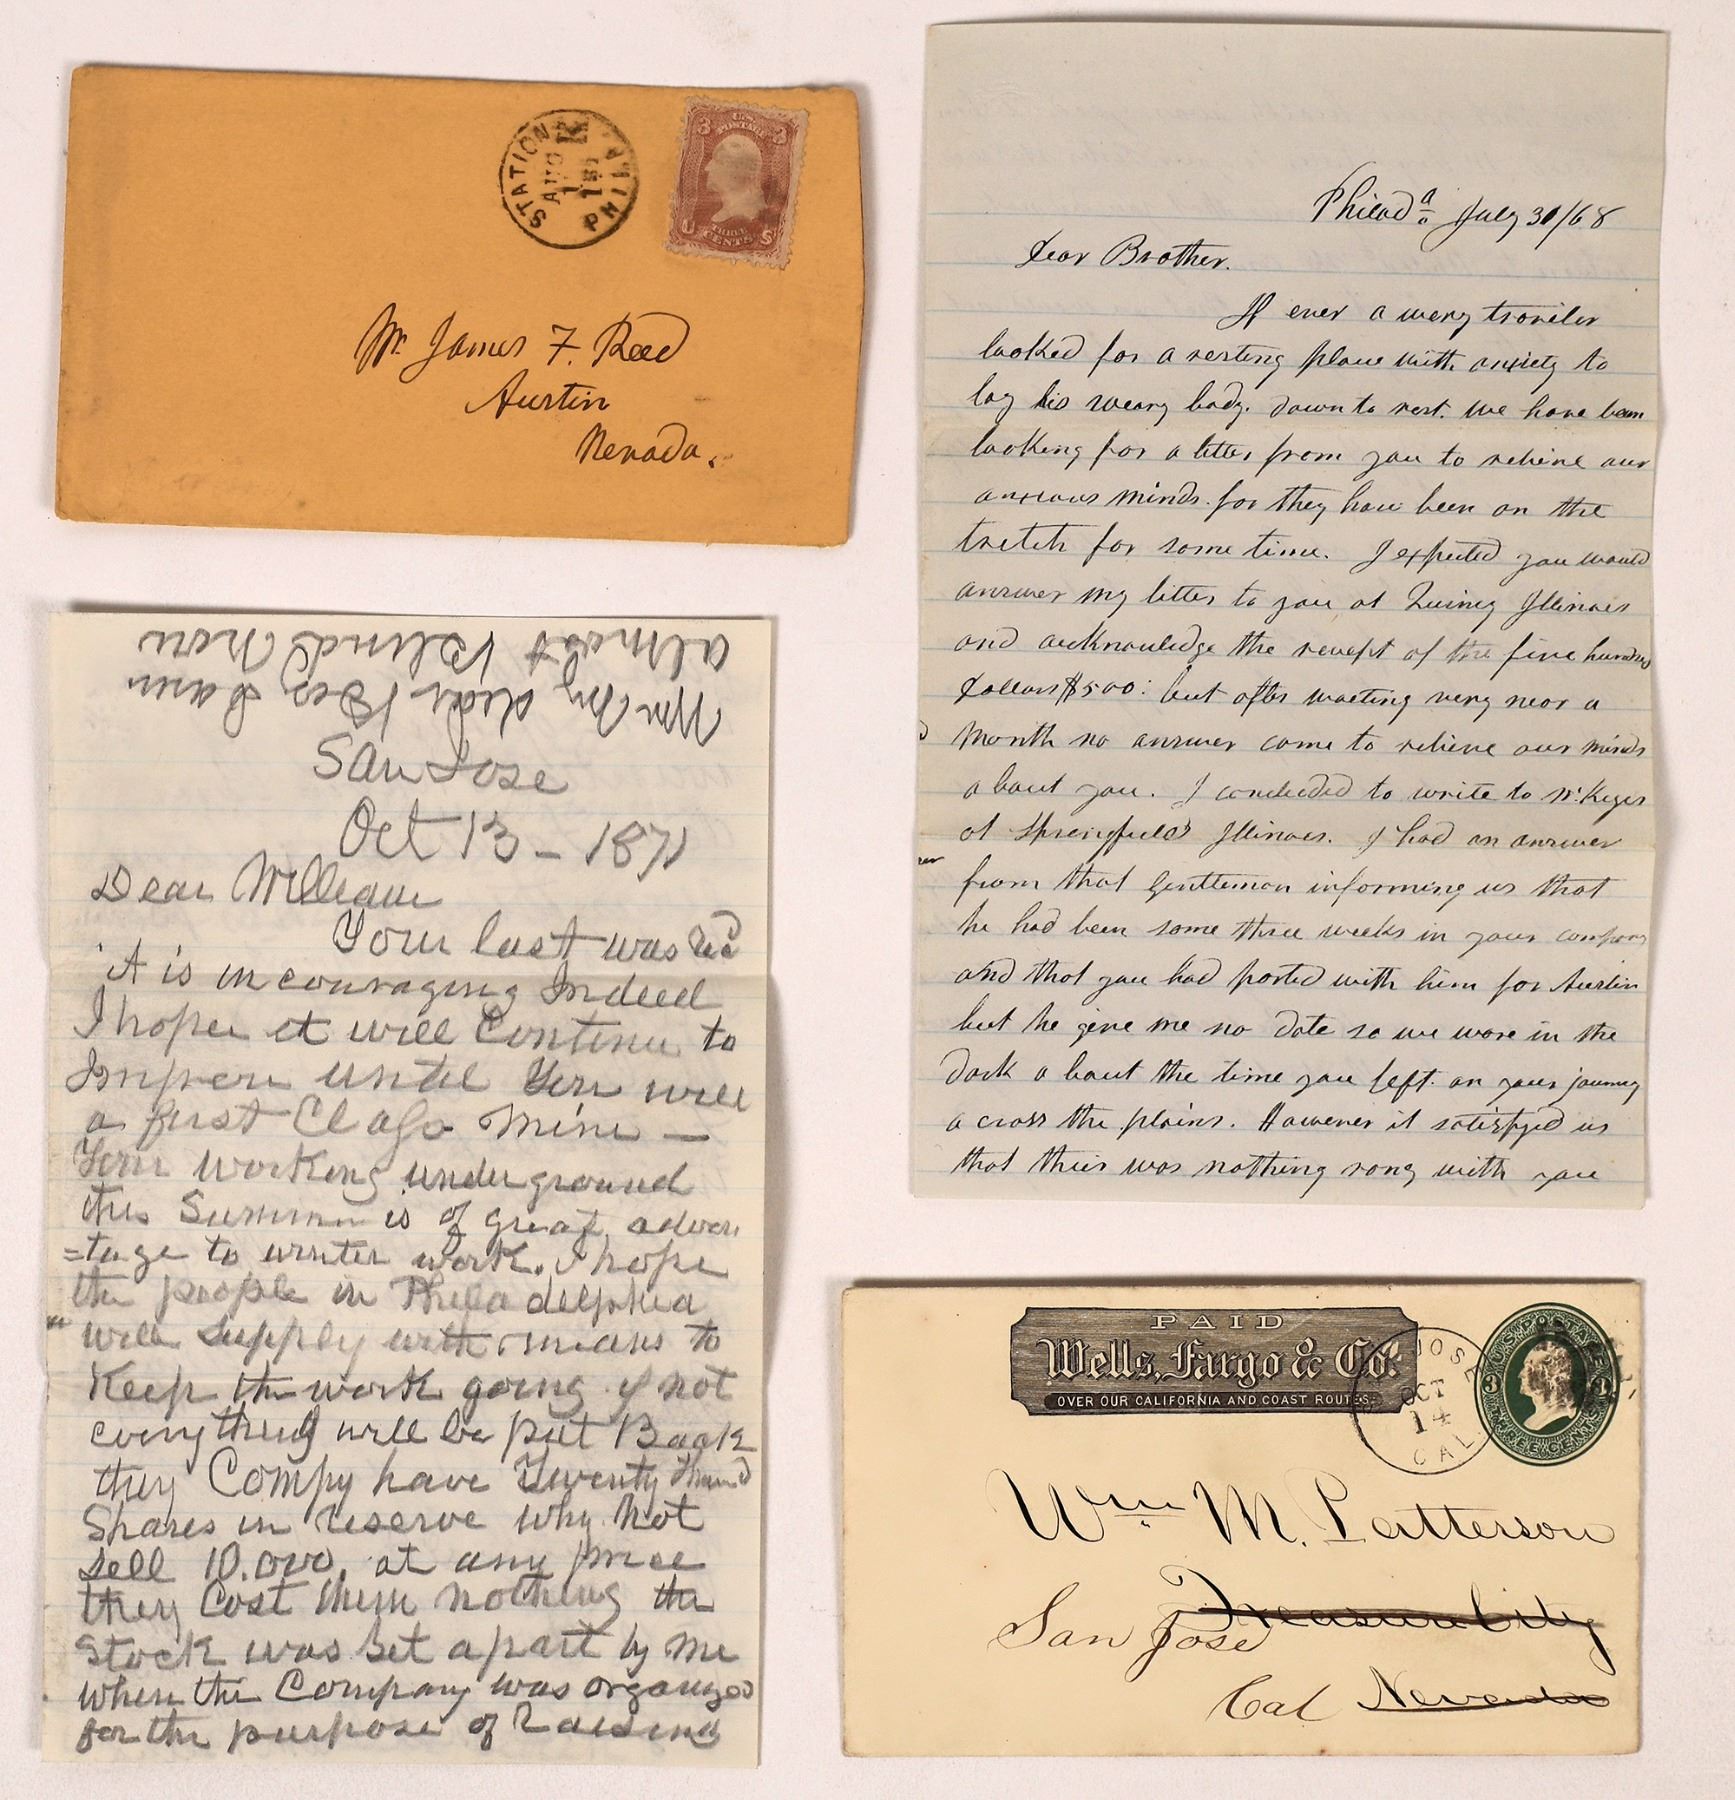 STATION K PHILA
AUG
1
U.S. POSTAGE
3 3
THREE
CENTS
U S
Mr. James F. Reed
Austin
Nevada.
Philada July 30/68
Dear Brother.
If ever a wery traveiler
looked for a resting place with anxiety to
lay his weary body. down to rest. we have been
looking for a letter from you to relieve our
anxious minds. for they have been on the
tretch for some time. I expected you would
answer my letter to you at Quincy Illinois
and acknowledge the receipt of the five hundred
dollars $500: but after waeting very near a
Month no answer came to relieve our minds
about you. I concluded to write to Mr. Keyes
at Springfield Illinois. I had an answer
from that Gentleman informing us that
he had been some three weeks in your company
and that you had parted with him for Austin
but he give me no date so we wore in the
dark about the time you left on your journey
across the plains. However it satisfyed us
that thier was nothing rong with you
Wm My dear Boy I am
almost Blind Now
San Jose
Oct 13 - 1871
Dear William
Your last was Recd
it is incouraging Indeed
I hope it will Continue to
Improve until You will
a first Class Mine —
Your working underground
this Summer is of great advan
=tage to winter work. I hope
the people in Philadelphia
will supply with means to
Keep the work going if not
everything will be put Back
they Compy have Twenty thousd
Shares in reserve why Not
Sell 10.000, at any price
they Cost them nothing the
Stock was Set apart by Me
when the Company was organized
for the purpose of Raising
PAID
Wells, Fargo & Co.
OVER OUR CALIFORNIA AND COAST ROUTES.
JOSE
OCT
14
CAL.
U.S. POSTAGE
3
THREE CENTS
Wm M. Patterson
Treasure City
San Jose
Cal Nevada